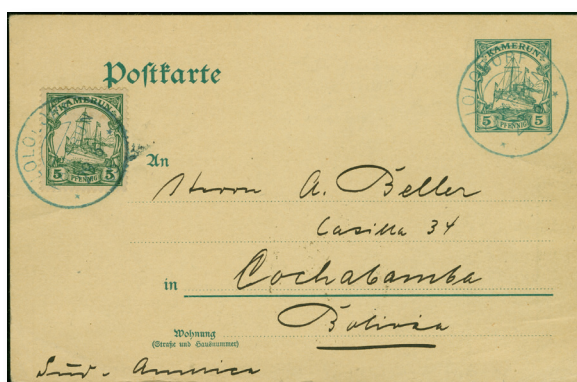 Postkarte
KAMERUN
5 PFENNIG 5
KAMERUN
5 PFENNIG 5
An
Herrn A. Beller
Casilla 34
in Cochabamba
Bolivia
Wohnung
(Straße und Hausnummer)
Süd-America